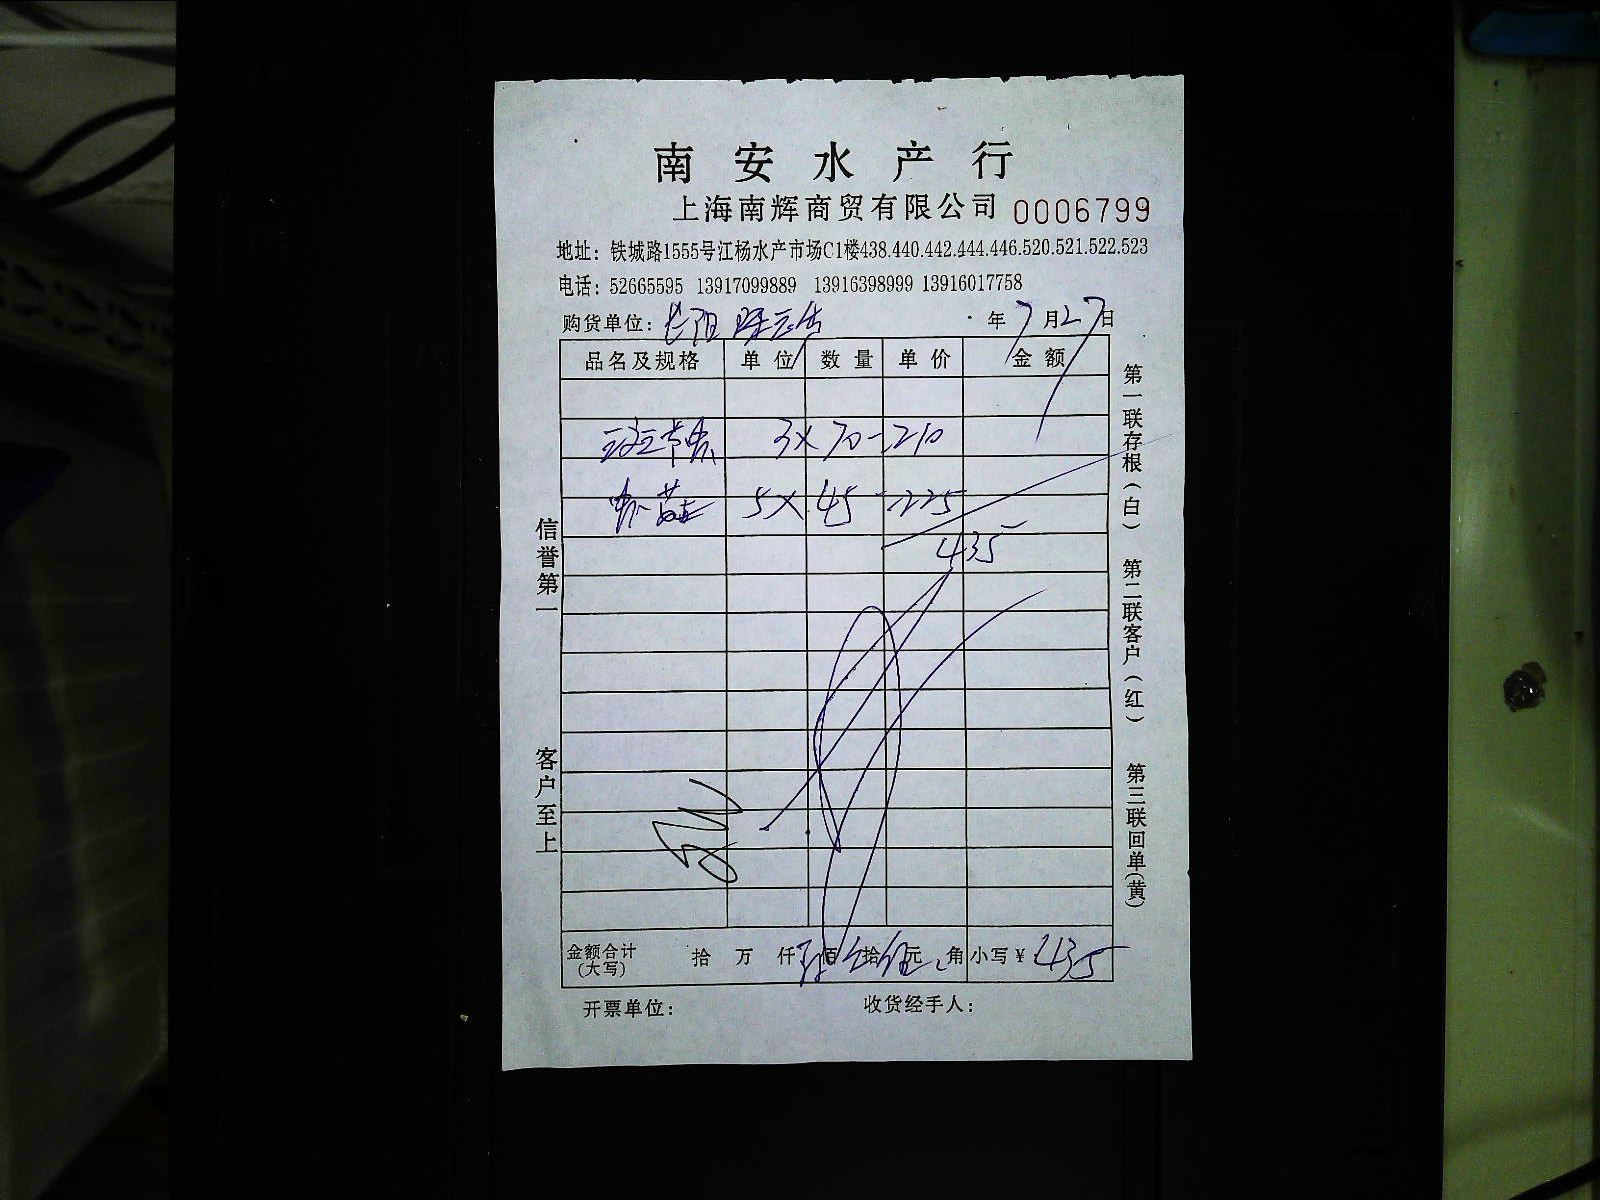 南安水产行
上海南辉商贸有限公司 0006799
地址：铁城路1555号江杨水产市场C1楼438.440.442.444.446.520.521.522.523
电话：52665595 13917099889 13916398999 13916017758
购货单位：长阳 年7月27日
品名及规格 单位 数量 单价 金额
3×70-210
5×45-225
435
金额合计（大写） 拾 万 仟 百 拾 元 角 小写¥435
开票单位： 收货经手人：
信誉第一 客户至上
第一联存根（白） 第二联客户（红） 第三联回单（黄）